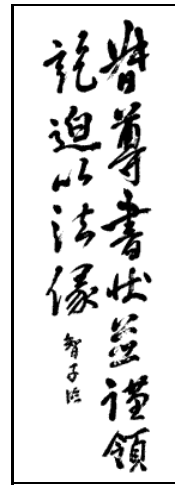 督尊書状並謹領
訖迫以法縁
智子臨